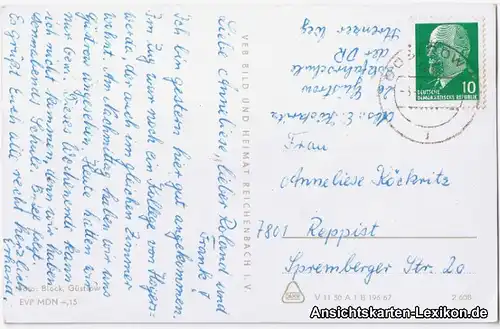 Liebe Anneliese, lieber Roland und
Frank!
Ich bin gestern hier gut angekommen.
Im Zug war noch ein Kollege von Hoyers-
werda, der auch im gleichen Zimmer
wohnt. Am Nachmittag haben wir uns
Güstrow angesehen. Heute hatten wir
nur bem. Dieses Wochenende kann
ich nicht kommen, denn wir haben
Sonnabend Schule. B.see jetzt
Es grüßt Euch alle recht herzlich
Erhard.
Foto: Block, Güstrow
EVP MDN –,15
VEB BILD UND HEIMAT REICHENBACH I. V.
Abs.: E. Köckritz
Güstrow
der DR
Weg
GÜSTROW
10
DEUTSCHE
DEMOKRATISCHE REPUBLIK
Frau
Anneliese Köckritz
7801 Reppist
Spremberger Str. 20
V 11 50 A 1 B 196 67
2 636
Ansichtskarten-Lexikon.de